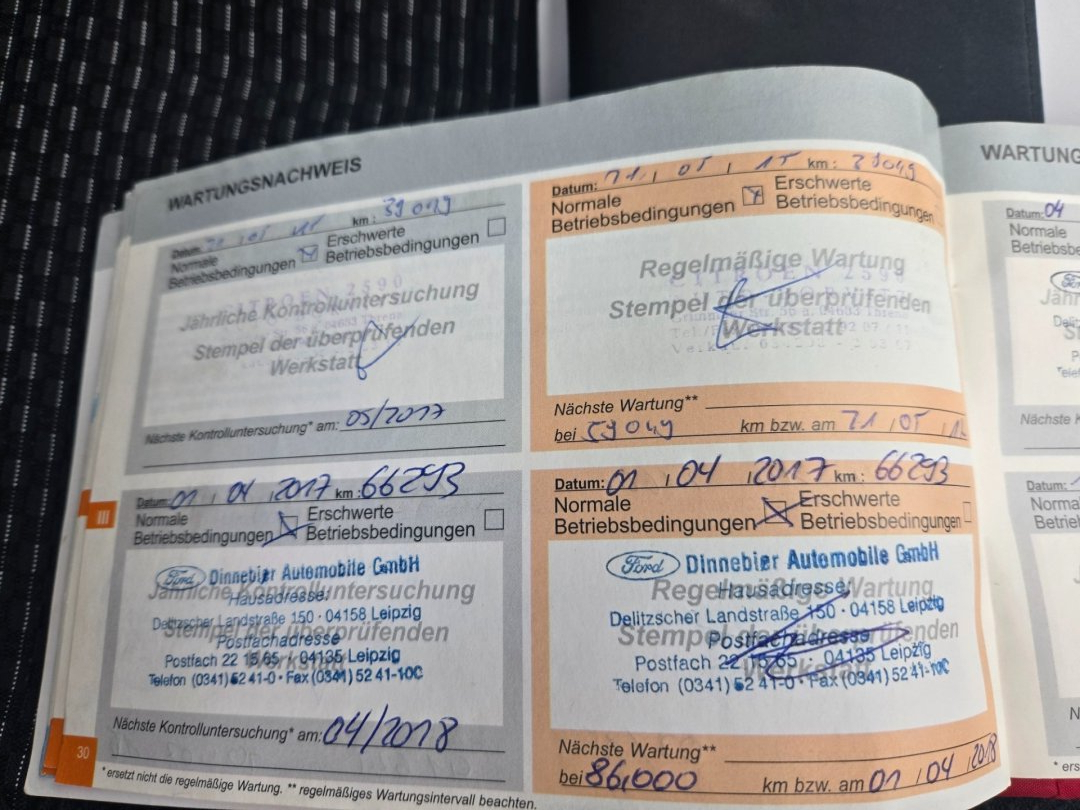 WARTUNGSNACHWEIS
Datum: km: 39 049
Normale Betriebsbedingungen
Erschwerte Betriebsbedingungen
CITROEN 2590
Jährliche Kontrolluntersuchung
Stempel der überprüfenden
Werkstatt
Nächste Kontrolluntersuchung* am: 05/2017
Datum: 05 15 km: 39049
Normale Betriebsbedingungen
Erschwerte Betriebsbedingungen
Regelmäßige Wartung
CITROEN 2590
Stempel der überprüfenden
Werkstatt
Nächste Wartung**
bei 59049 km bzw. am 05
Datum: 01 04 2017 km: 66293
Normale Betriebsbedingungen
Erschwerte Betriebsbedingungen
Ford Dinnebier Automobile GmbH
Jährliche Kontrolluntersuchung
Hausadresse:
Delitzscher Landstraße 150 · 04158 Leipzig
Stempel der überprüfenden
Postfachadresse
Werkstatt
Postfach 22 15 65 · 04135 Leipzig
Telefon (0341) 52 41-0 · Fax (0341) 52 41-100
Nächste Kontrolluntersuchung* am: 04/2018
Datum: 01 04 2017 km: 66293
Normale Betriebsbedingungen
Erschwerte Betriebsbedingungen
Ford Dinnebier Automobile GmbH
Regelmäßige Wartung
Hausadresse:
Delitzscher Landstraße 150 · 04158 Leipzig
Stempel der überprüfenden
Postfachadresse
Werkstatt
Postfach 22 15 65 04135 Leipzig
Telefon (0341) 52 41-0 · Fax (0341) 52 41-100
Nächste Wartung**
bei 86,000 km bzw. am 01 04 2018
III
30
* ersetzt nicht die regelmäßige Wartung. ** regelmäßiges Wartungsintervall beachten.
WARTUNG
Datum: 04
Normale
Betriebsbed
Nächste K
Datum:
Normal
Betrieb
* ers